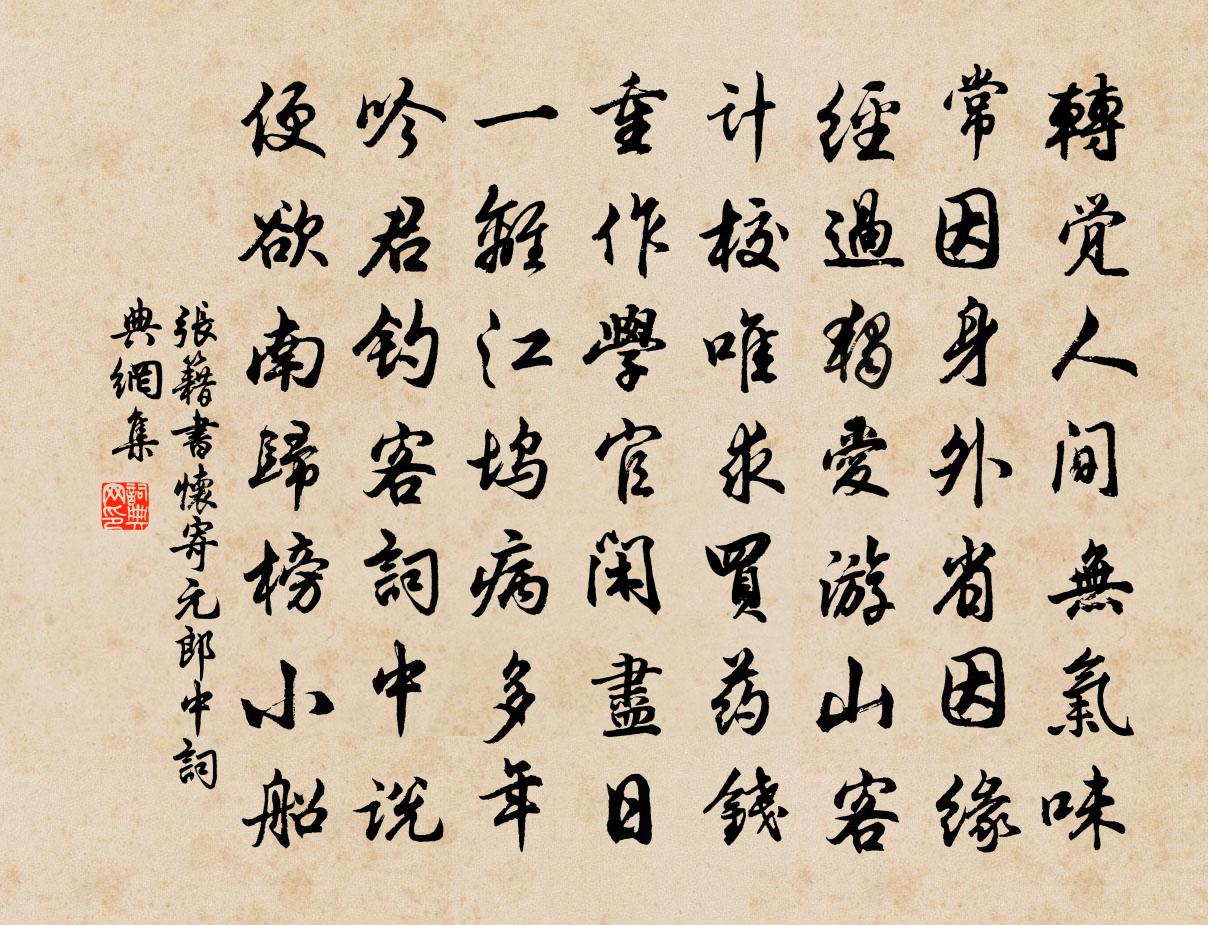 轉觉人间無氣味
常因身外省因緣
經過獨愛游山客
计校唯求買药錢
重作學官闲盡日
一離江坞病多年
吟君钓客詞中说
便欲南歸榜小船
張籍書懷寄元郎中詞
典網集
詞典
网印